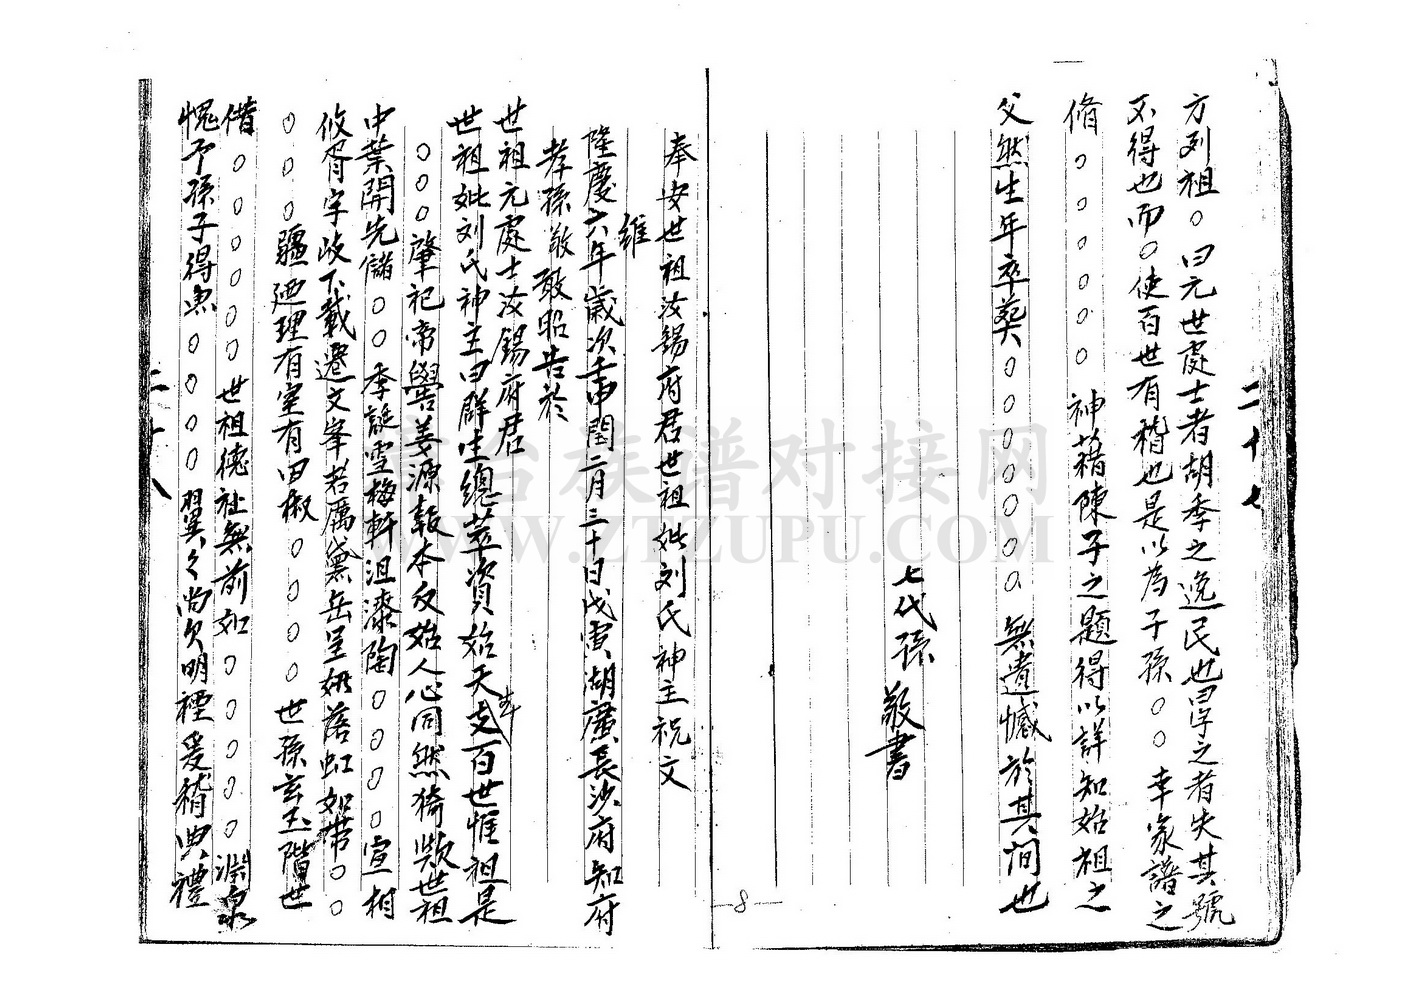 二十七
方列祖○曰元世處士者胡季之逸民也曰字之者失其號
不得也而○使百世有稽也是以為子孫○○幸家譜之
脩○○○○○神藉陳子之題得以詳知始祖之
父然生年卒葬○○○○○○○無遺憾於其间也
七代孫 敬書
奉安世祖汝錫府君世祖妣刘氏神主祝文
維
隆慶六年歲次壬申閏二月三十日戊寅湖廣長沙府知府
孝孫敬敢昭告於
世祖元處士汝錫府君
世祖妣刘氏神主曰群生總萃資始天支百世惟祖是
○○○肇祀帝嚳姜源報本反始人心同然猗歟世祖
中葉開先儲○○季誕雪梅軒沮漆陶○○○○宣相
攸胥宇岐下載遷文峯若厲黛岳呈妍落虹如带○○
○○○疆廼理有室有田椒○○○○○世孫玄玉階世
借○○○○○○世祖德祉無前如○○○○○淵泉
愧予孫子得魚○○○○○翼々尚欠明禋爰稽典禮
二十八
—8—
青台族谱对接网
WWW.ZTZUPU.COM